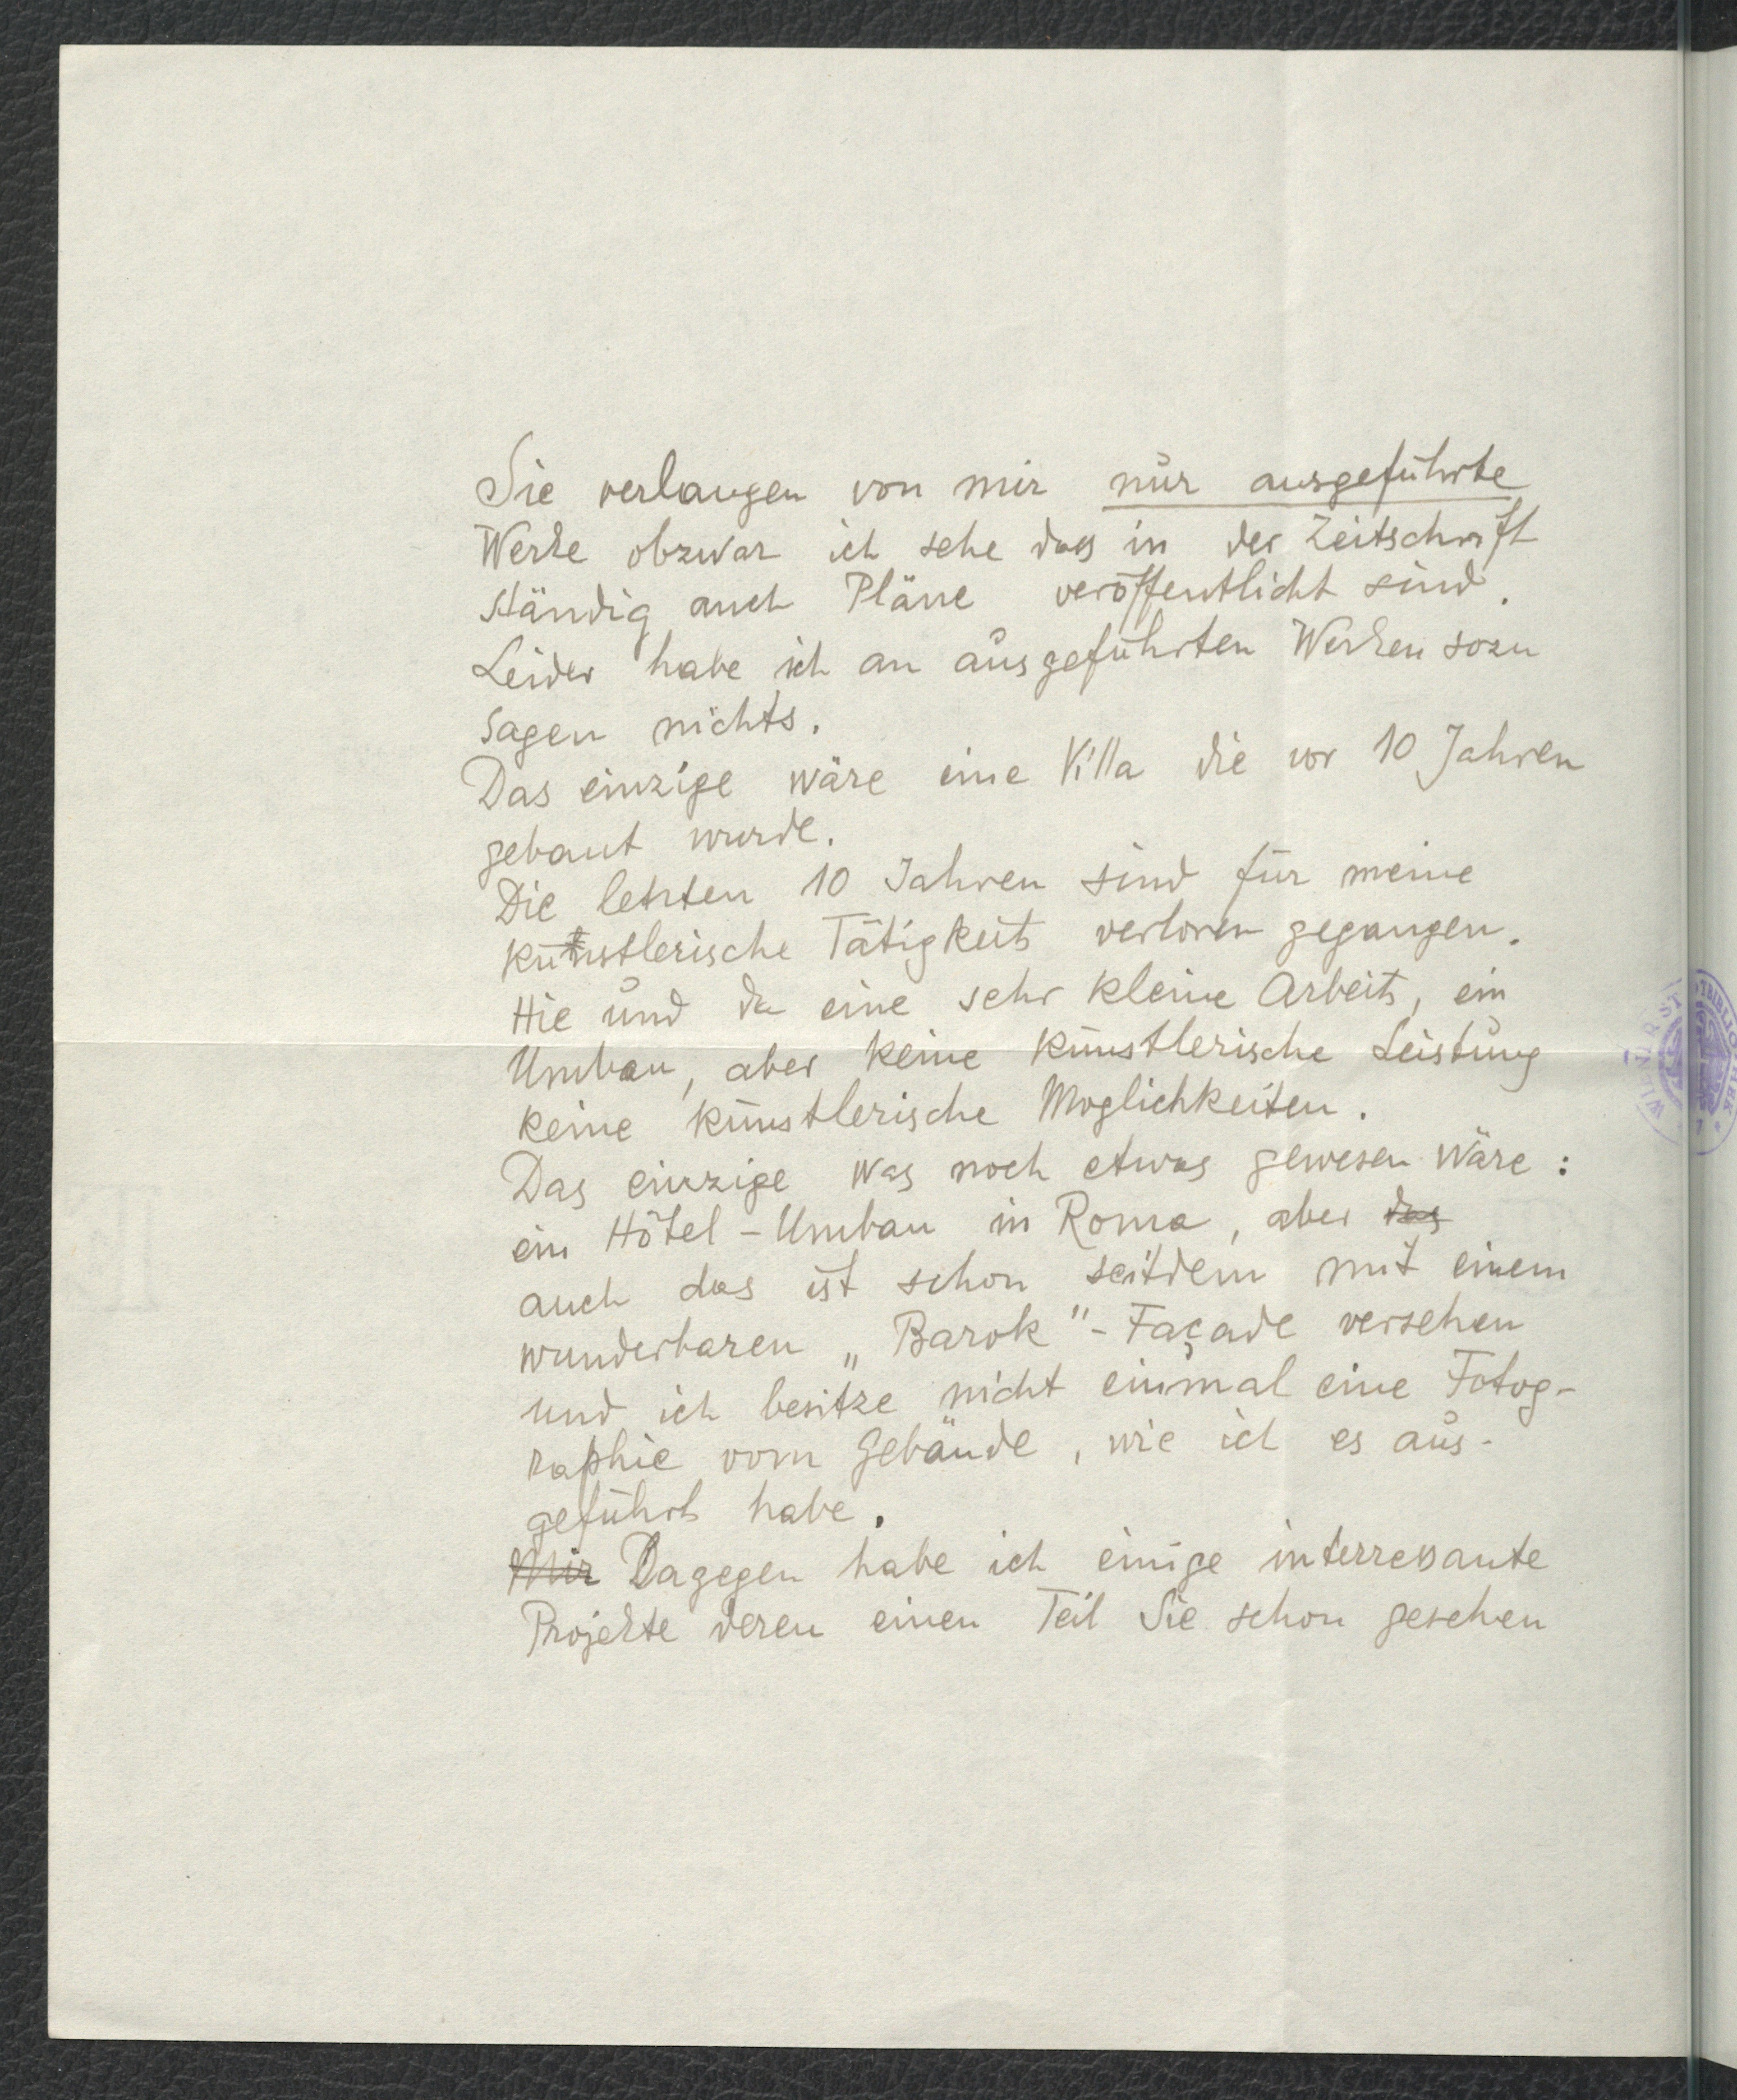 Sie verlangen von mir nur ausgeführte
Werke obzwar ich sehe das in der Zeitschrift
ständig auch Pläne veröffentlicht sind.
Leider habe ich an ausgeführten Werken sozu
sagen nichts.
Das einzige wäre eine Villa die vor 10 Jahren
gebaut wurde.
Die letzten 10 Jahren sind für meine
künstlerische Tätigkeit verloren gegangen.
Hie und da eine sehr kleine Arbeit, ein
Umbau, aber keine künstlerische Leistung
keine künstlerische Moglichkeiten.
Das einzige was noch etwas gewesen wäre:
ein Hôtel-Umbau in Roma, aber das
auch das ist schon seitdem mit einem
wunderbaren „Barok"-Façade versehen
und ich besitze nicht einmal eine Fotog-
raphie vom Gebäude, wie ich es aus-
geführt habe.
Mir Dagegen habe ich einige interresante
Projekte deren einen Teil Sie schon gesehen